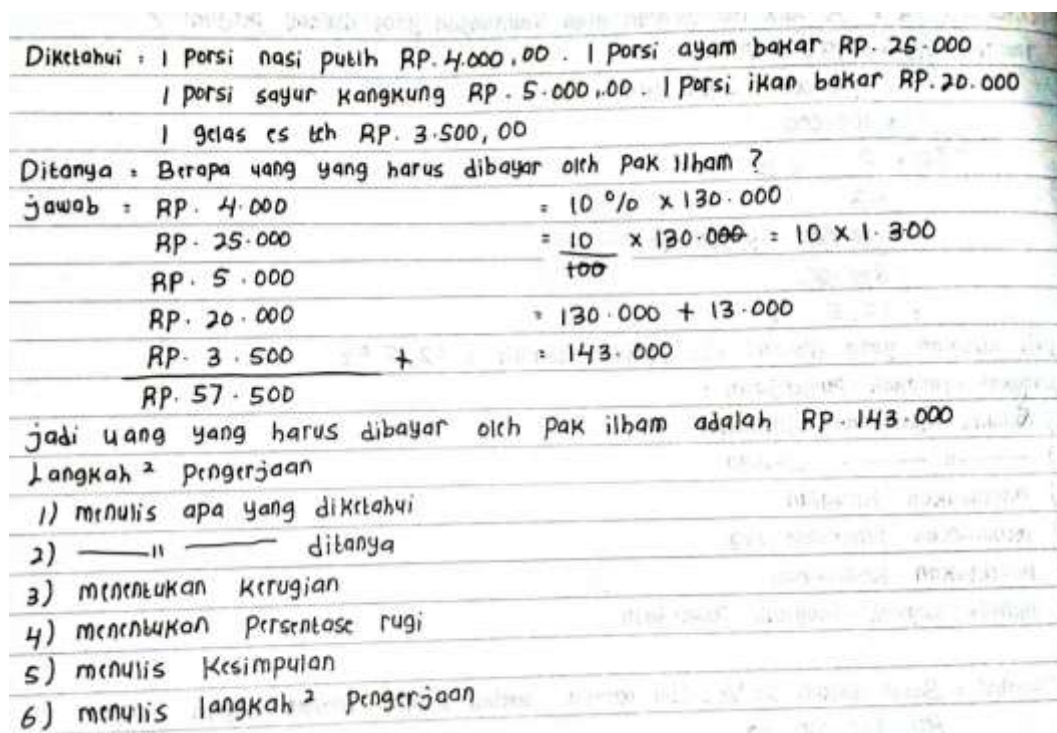 Diketahui : 1 Porsi nasi putih RP. 4.000,00 . 1 Porsi ayam bakar RP. 25.000
1 porsi sayur kangkung RP. 5.000,00 . 1 Porsi ikan bakar RP. 20.000
1 gelas es teh RP. 3.500,00
Ditanya : Berapa uang yang harus dibayar oleh Pak Ilham ?
jawab : RP. 4.000 = 10 % x 130.000
RP. 25.000 = 10/100 x 130.000 = 10 x 1.300
RP. 5.000
RP. 20.000 = 130.000 + 13.000
RP. 3.500 + = 143.000
RP. 57.500
jadi uang yang harus dibayar oleh Pak ilham adalah RP. 143.000
Langkah ² Pengerjaan
1) menulis apa yang diketahui
2) —— " —— ditanya
3) menentukan kerugian
4) menentukan Persentase rugi
5) menulis Kesimpulan
6) menulis langkah ² pengerjaan